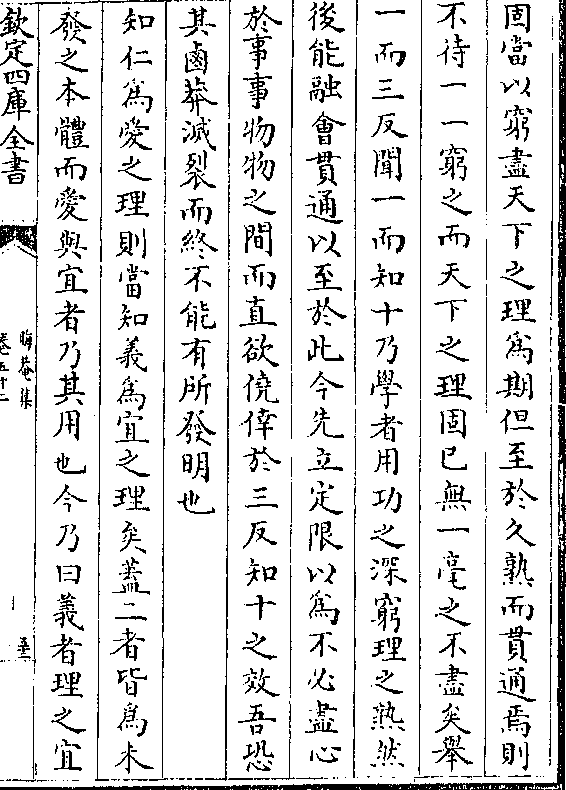 固當以窮盡天下之理爲期但至於久熟而貫通焉則
不待一一窮之而天下之理固已無一毫之不盡矣舉
一而三反聞一而知十乃學者用功之深窮理之熟然
後能融會貫通以至於此今先立定限以爲不必盡心
於事事物物之間而直欲僥倖於三反知十之效吾恐
其鹵莽滅裂而終不能有所發明也
知仁爲愛之理則當知義爲宜之理矣蓋二者皆爲未
發之本體而愛與宜者乃其用也今乃曰義者理之宜
欽定四庫全書
晦菴集